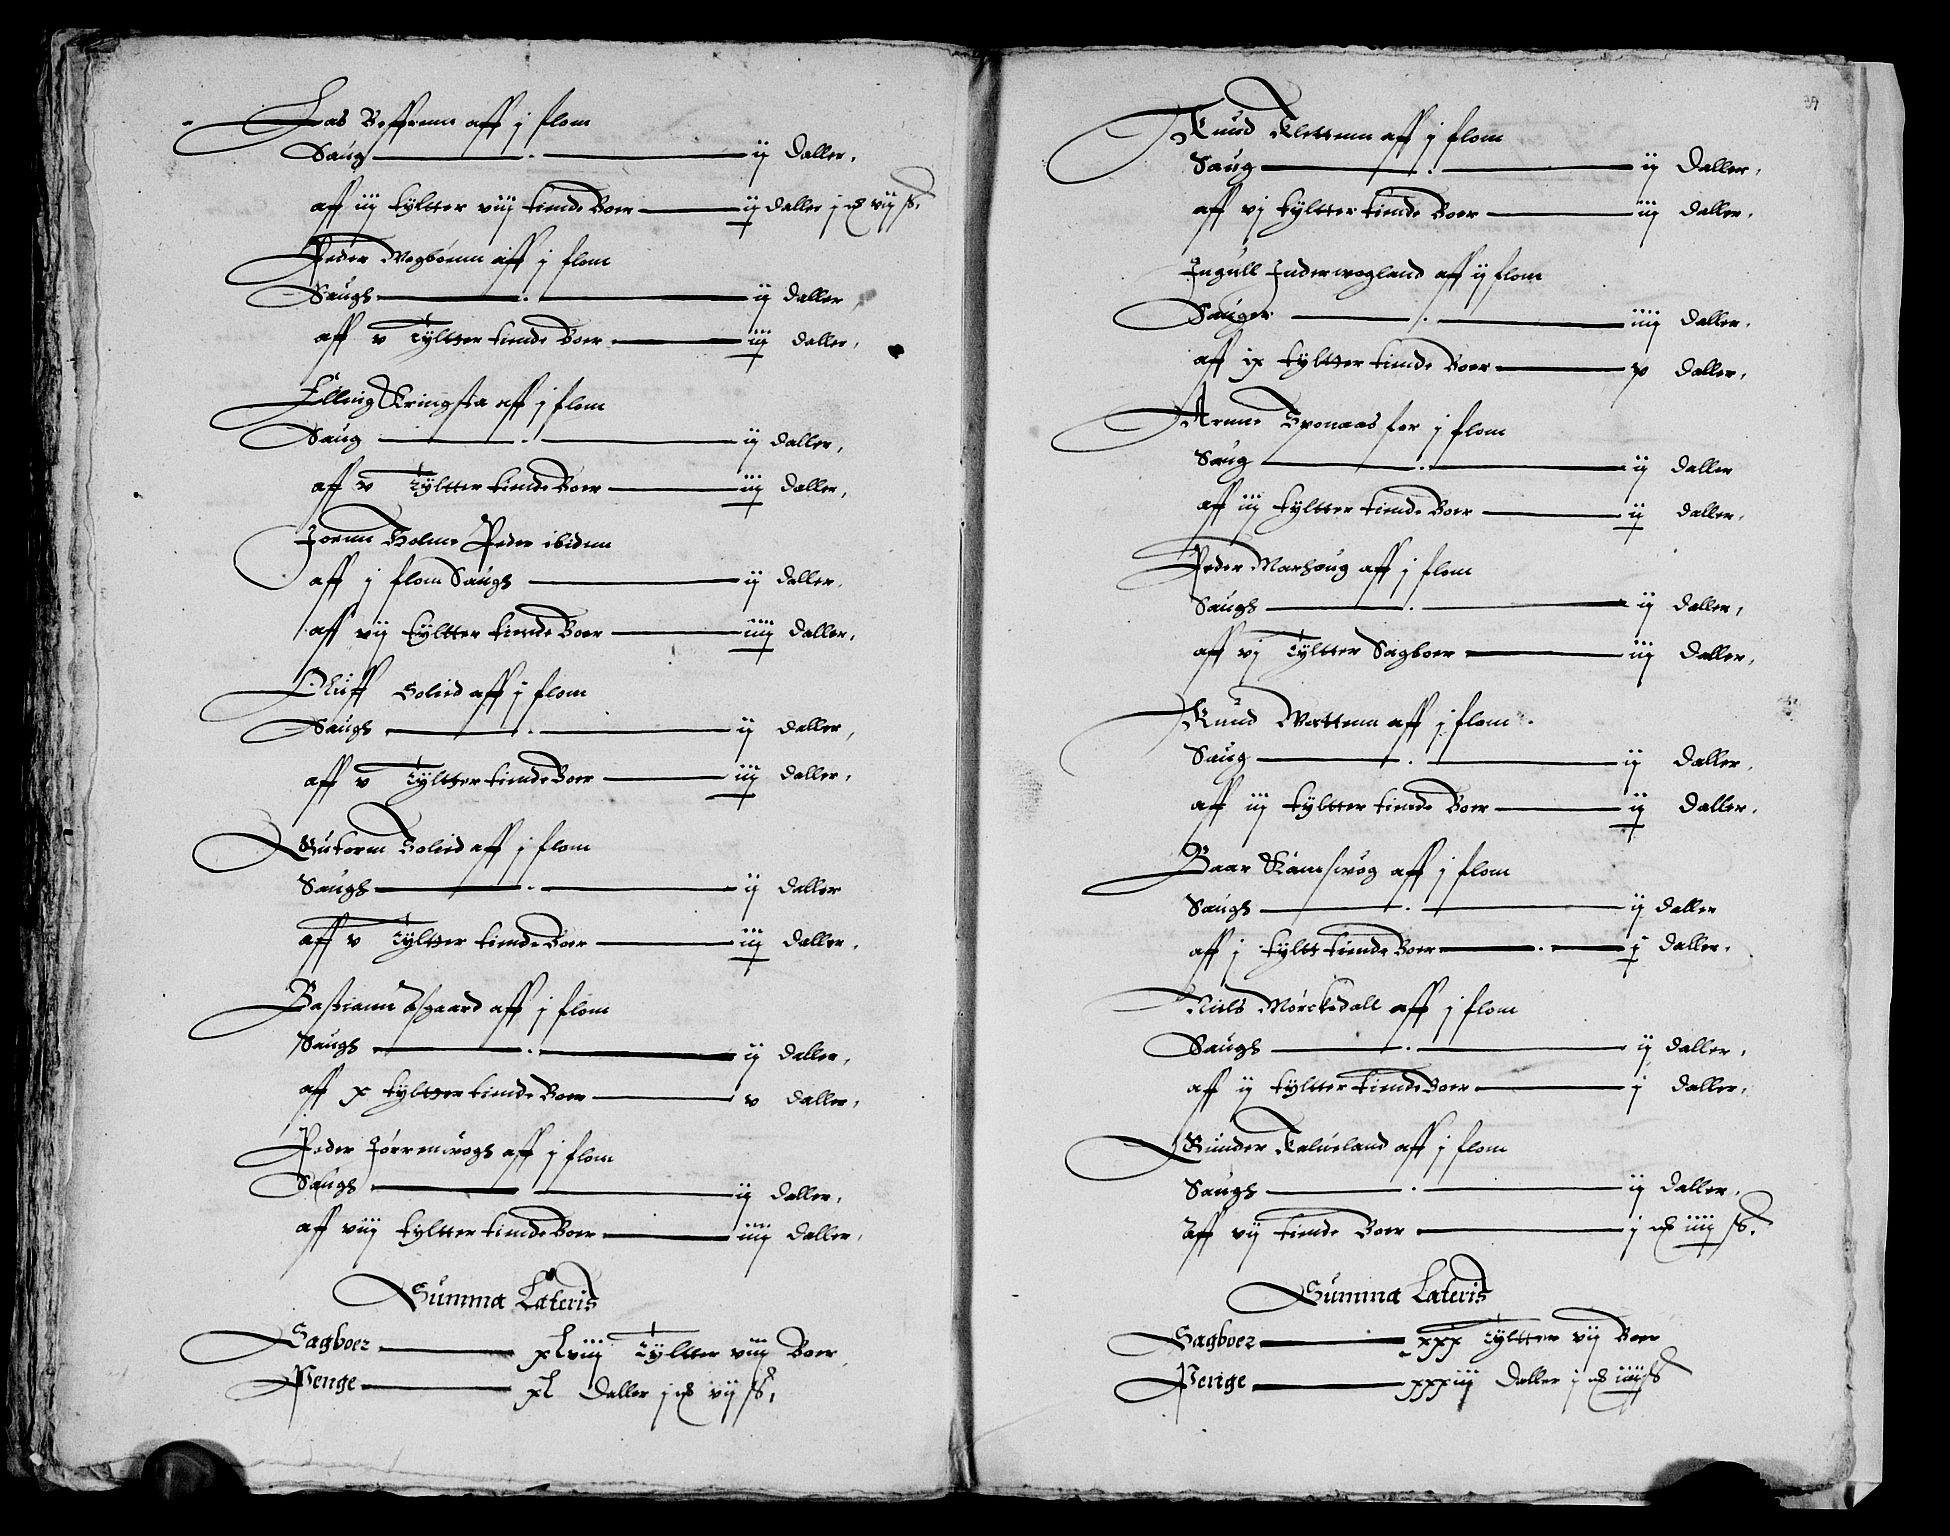 Las Reffrenn aff j flom
Saug ij daller,
aff iiij tyltter viij tiende Boer ij daller j # vij ß.
Peder Wegboenn aff j flom
Saugh ij daller
aff v Tyltter tiende Boer iij daller,
Elling Kringsta aff j flom
Saug ij daller,
aff v Tyltter tiende Boer iij daller,
Jorenn Holme Peder ibidem
aff j flom Saugh ij daller,
aff vij tyltter tiende Boer iiij daller,
Oluff Solied aff j flom
Saugh ij daller,
aff v Tyltter tiende Boer iij daller,
Gutorm Solied aff j flom
Saugh ij daller
aff v Tyltter tiende Boer iij daller,
Bastiann aff j flom
Saugh ij daller,
aff x tyltter tiende Boer v daller,
Peder Jörrenwogh aff j flom
Saugh ij daller,
aff viij tyltter tiende Boer iiij daller,
Summa Lateris
Sagboer xlviij Tyltter viij Boer
Penge xl daller j # vij ß.
39
Knud Klettenn aff j flom
Saug ij daller,
aff vj tyltter tiende Boer iij daller,
Ingull Inderwogland aff ij flom
Sauger iiij daller,
aff ix tyltter tiende Boer v daller,
Arnne Sponaas for j flom
Saug ij daller
aff iij tyltter tiende Boer ij daller,
Peder Marhoug aff j flom
Saugh ij daller,
aff vj Tyltter Sagboer iij daller,
Knud Wattenn aff j flom
Saug ij daller,
aff iij tyltter tiende Boer ij daller,
Baar Ramswog aff j flom
Saugh ij daller
aff j tyltt tiende Boer j daller,
Niels Mörckedall aff j flom
Saugh ij daller,
aff ij tyltter tiende Boer j daller,
Gunder Kalueland aff j flom
Saugh ij daller,
Aff vij tiende Boer j # iiij ß.
Summa Lateris
Sagboer xxx Tyltter vij Boer
Penge xxxiij daller j # iiij ß